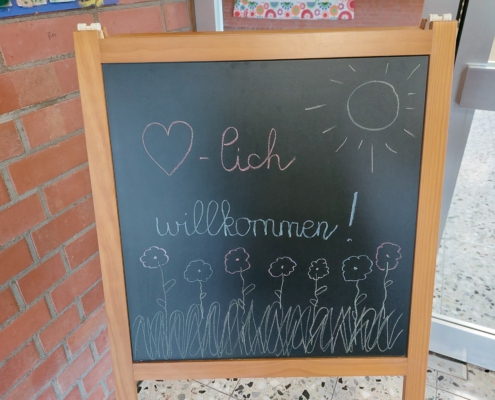 ♡-lich
willkommen!